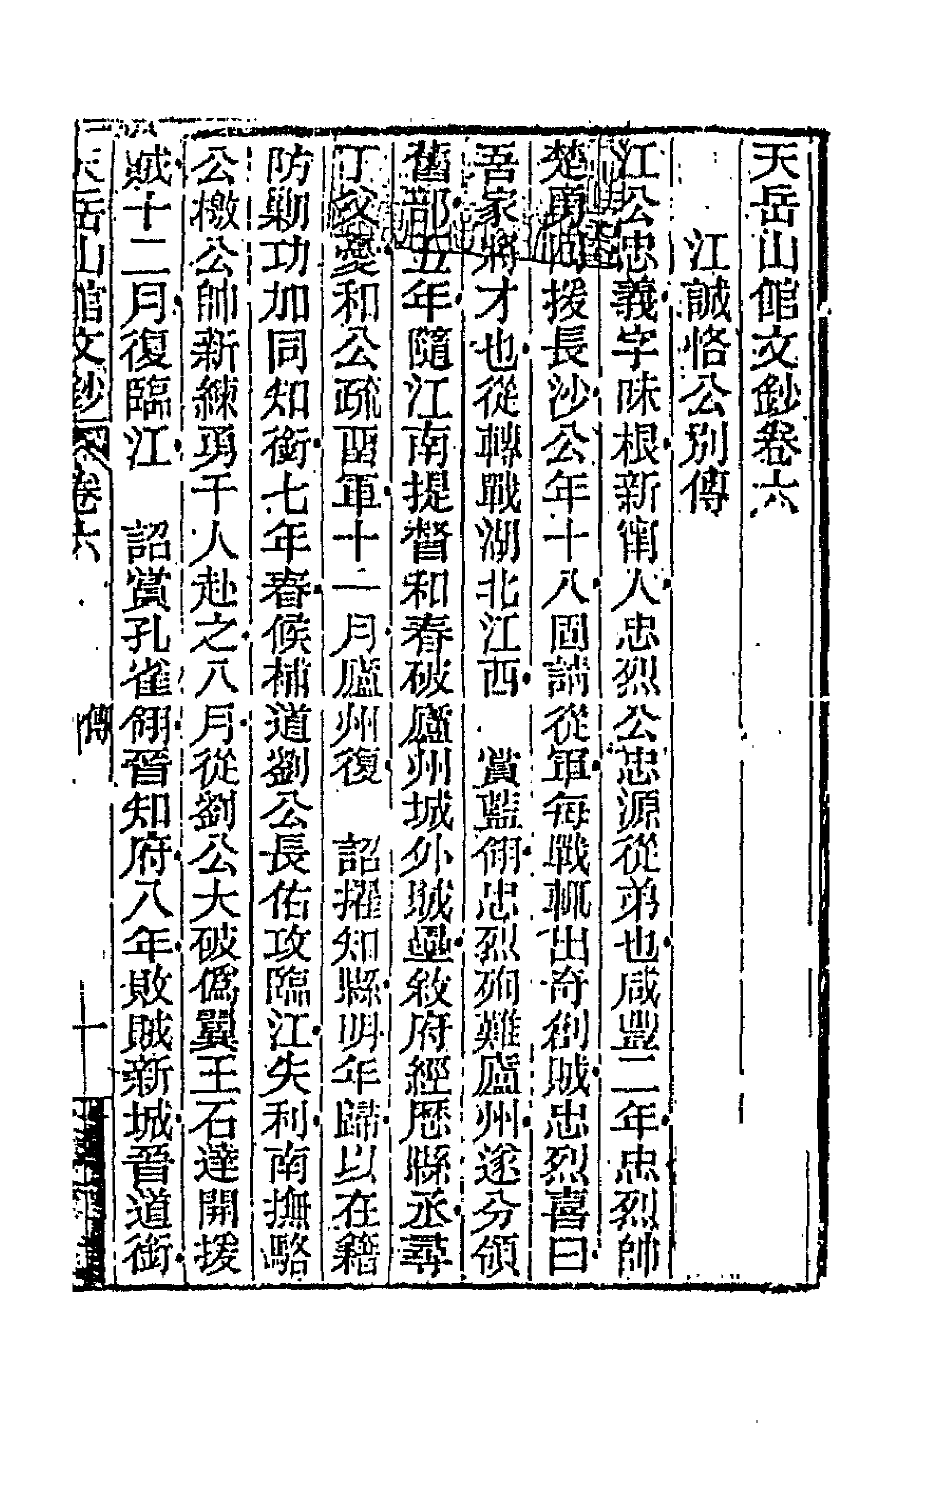 天岳山館文鈔卷六
江誠恪公別傳
江公忠義字味根新甯人忠烈公忠源從弟也咸豐二年忠烈帥
楚勇回援長沙公年十八固請從軍每戰輒出奇創賊忠烈喜曰
吾家將才也從轉戰湖北江西 賞藍翎忠烈殉難廬州遂分領
舊部五年隨江南提督和春破廬州城外賊壘敘府經歷縣丞尋
丁父憂和公疏畱軍十一月廬州復 詔擢知縣明年歸以在籍
防勦功加同知銜七年春候補道劉公長佑攻臨江失利南撫駱
公檄公帥新練勇千人赴之八月從劉公大破僞翼王石達開援
賊十二月復臨江 詔賞孔雀翎晉知府八年敗賊新城晉道銜
天岳山館文鈔 卷六 傳 十